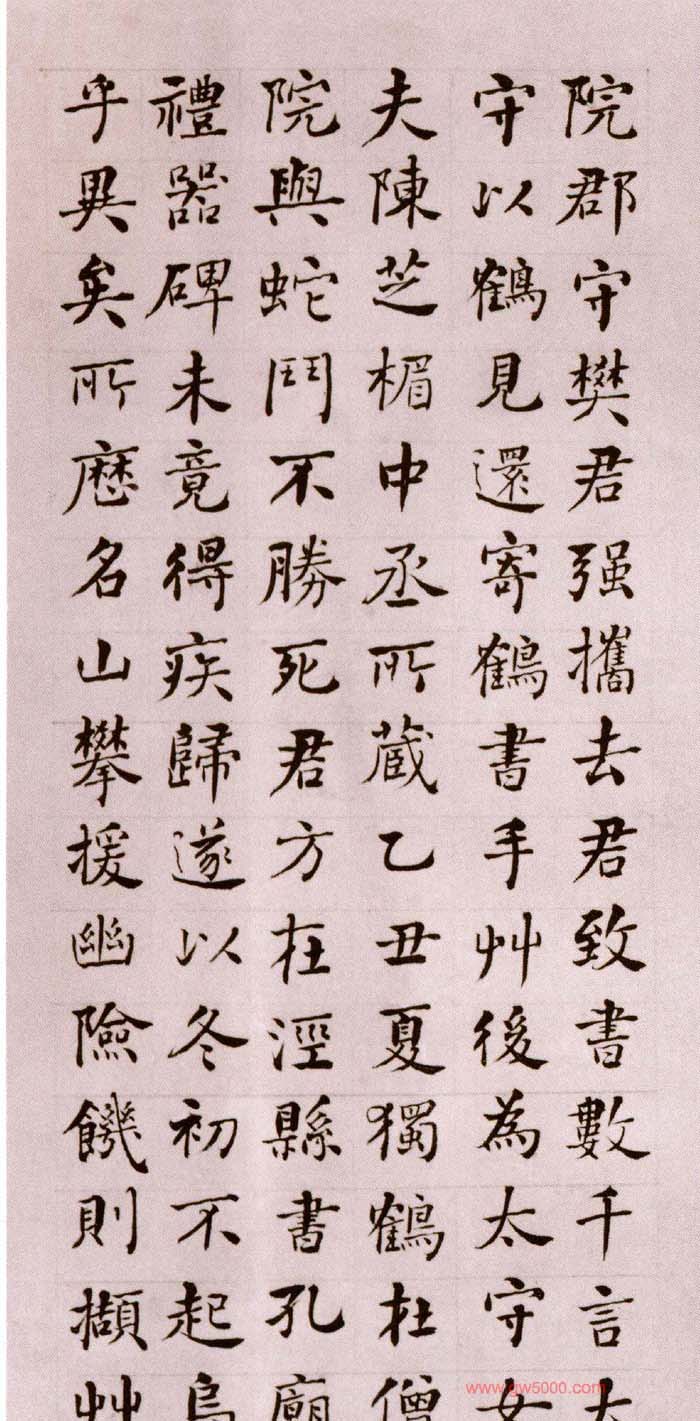 院郡守樊君强攜去君致書數千言大
守以鶴見還寄鶴書手艸後為太守女
夫陳芝楣中丞所蔵乙丑夏獨鶴在僧
院與蛇鬥不勝死君方在涇縣書孔廟
禮器碑未竟得疾歸遂以冬初不起烏
乎異矣所歷名山攀援幽險饑則擷艸
www.gw5000.com